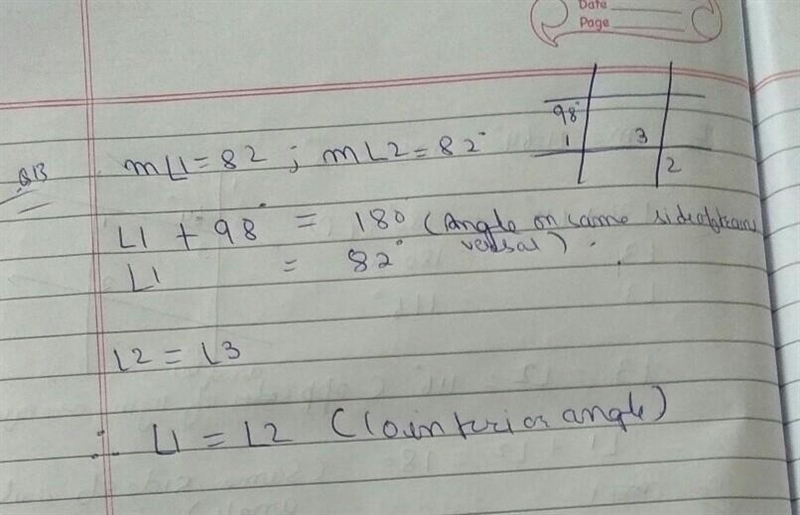 Date
Page
98°
1 3
2
Q13 m∠1 = 82 ; m∠2 = 82°
∠1 + 98° = 180 (Angle on same side of trans
versal)
∠1 = 82°
∠2 = ∠3
∴ ∠1 = ∠2 (Cointerior angle)